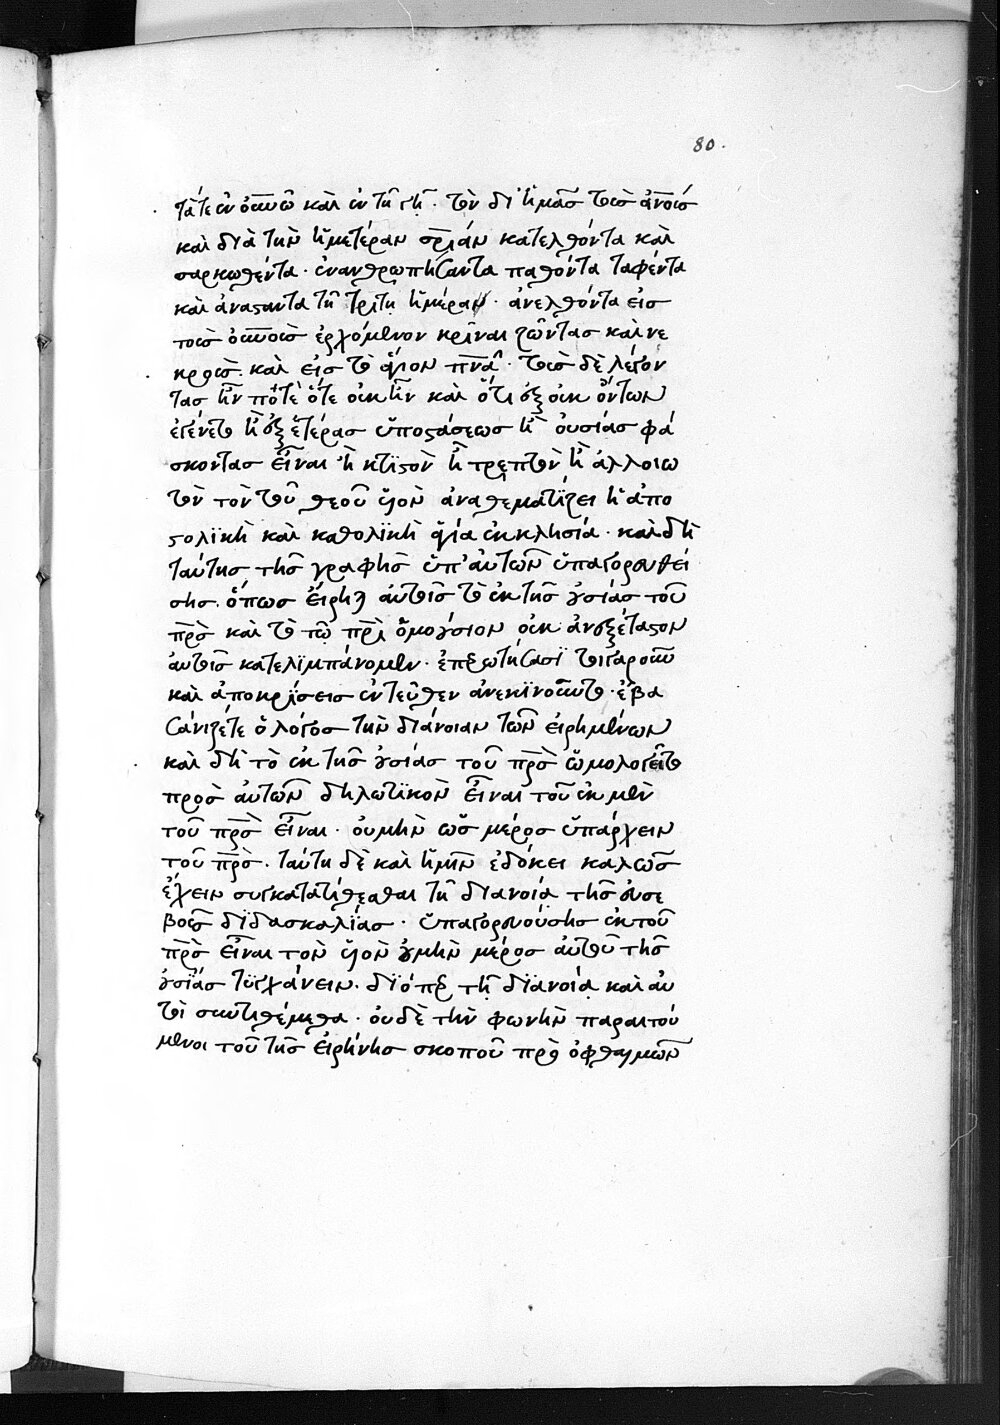 80.
τάτε ἐν οὐνῶ καὶ ἐν τῆ γῆ · τὸν δι ἡμᾶσ τοὺσ ἀνουσ
καὶ διὰ τὴν ἡμετέραν σριάν κατελθόντα καὶ
σαρκωθέντα · ἐνανθρωπήσαντα παθόντα ταφέντα
καὶ ἀναϛαντα τῆ τρίτη ἡμέραν · ἀνελθόντα εἰσ
τοὺσ οὐνοὺσ ἐρχόμενον κρῖναι ζῶντασ καὶ νε
κροὺσ · καὶ εἰσ τὸ ἅγιον πνᾶ · τοὺσ δὲ λέγον
τασ ἦν ποτὲ ὅτε οὐκ ἦν καὶ ὅτι ἐξ οὐκ ὄντων
ἐγένετο ἢ ἐξ ἑτέρασ ὑποϛάσεωσ ἢ οὐσίασ φά
σκοντασ εἶναι ἢ κτϊϛὸν ἢ τρεπτὸν ἢ ἀλλοιω
τὸν τὸν τοῦ θεοῦ ὑϊὸν ἀναθεματίζει ἡ ἀπο
ϛολϊκὴ καὶ καθολϊκὴ ἁγία ἐκκλησία · καὶ δὴ
ταύτησ τῆσ γραφῆσ ὑπ' αὐτῶν ὑπαγορευθεί
σησ · ὅπωσ εἴρητ αὐτοῖσ τὸ ἐκ τῆσ οὐσίασ τοῦ
πρσ καὶ τὸ τῶ πρι ὁμοούσιον οὐκ ἀνεξέταϛον
αὐτοῖσ κατελϊμπάνομεν · ἐπερωτήσασϊ τοιγαροῦν
καὶ ἀποκρίσεισ ἐντεῦθεν ἀνεκϊνοῦντο · ἐβα
σάνιζέτε ὁ λόγοσ τὴν διάνοιαν τῶν εἰρημένων
καὶ δὴ τὸ ἐκ τῆσ οὐσίασ τοῦ πρσ ὡμολογεῖτο
πρὸσ αὐτῶν δηλωτϊκὸν εἶναι τοῦ ἐκ μὲν
τοῦ πρσ εἶναι · οὐ μὴν ὡσ μέροσ ὑπάρχειν
τοῦ πρσ · ταύτη δὲ καὶ ἡμῖν ἐδόκει καλῶσ
ἔχειν συγκατατίθεσθαι τῆ διανοία τῆσ εὐσε
βοῦσ δϊδασκαλϊασ · ὑπαγορευούσησ ἐκ τοῦ
πρσ εἶναι τὸν ὑϊὸν οὐ μὴν μέροσ αὐτοῦ τῆσ
οὐσϊασ τυγχάνειν · δϊόπερ τῆ δϊανοία καὶ αὐ
τοὶ συντιθέμεθα · οὐδὲ τὴν φωνὴν παραιτού
μενοι τοῦ τῆσ εἰρήνησ σκοποῦ πρὸ ὀφθαλμῶν